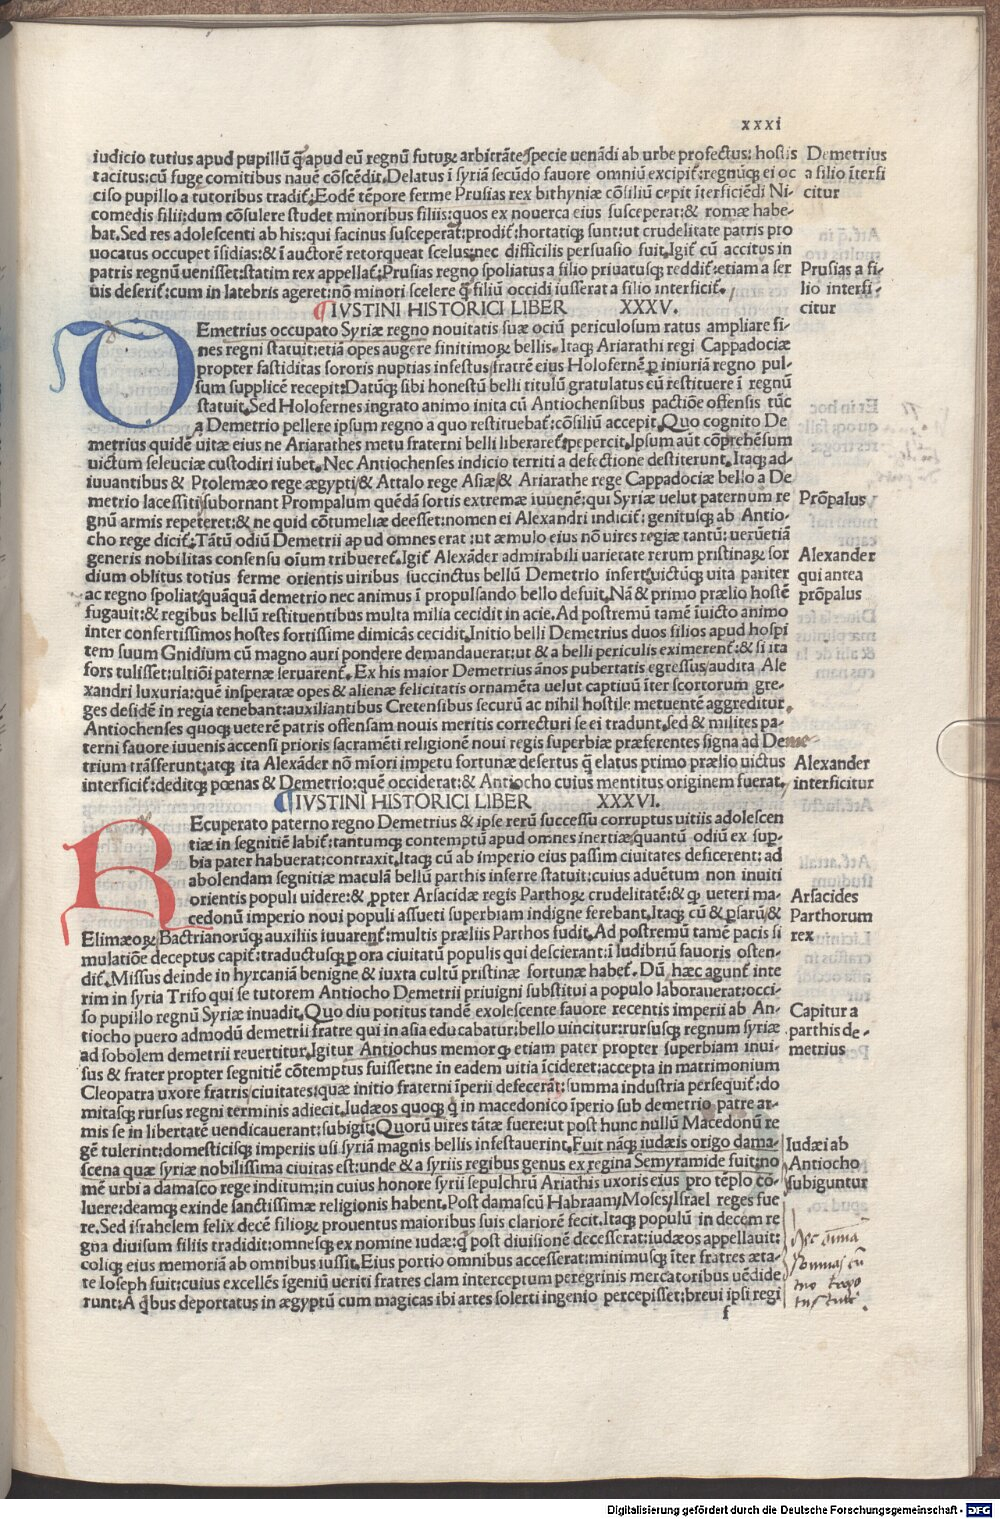 xxxi
iudicio tutius apud pupillū q̄ apud eū regnū futuꝝ arbitrāte specie uenādi ab urbe profectus: hostis
tacitus: cū fugę comitibus nauē cōscēdit. Delatus ī syriā secūdo fauore omniū excipit̃: regnūqꝫ ei oc
ciso pupillo a tutoribus tradit̃. Eodē tēpore ferme Prusias rex bithyniæ cōsiliū cepit īterficiēdi Ni-
comedis filii: dum cōsulere studet minoribus filiis: quos ex nouerca eius susceperat: & romæ habe-
bat. Sed res adolescenti ab his: qui facinus susceperāt: prodit̃: hortatiqꝫ sunt: ut crudelitate patris pro
uocatus occupet īsidias: & ī auctorē retorqueat scelus: nec difficilis persuasio fuit. Igit̃ cū accitus in
patris regnū uenisset: statim rex appellat̃. Prusias regno spoliatus a filio priuatusqꝫ reddit̃: etiam a ser
uis deserit̃: cum in latebris ageret: nō minori scelere q̄ filiū occidi iusserat a filio interficit̃.
Demetrius
a filio īterfi
citur
Prusias a fi-
lio interfi-
citur
IVSTINI HISTORICI LIBER XXXV.
DEmetrius occupato Syriæ regno nouitatis suæ ociū periculosum ratus ampliare fi-
nes regni statuit: etiā opes augere finitimoꝝ bellis. Itaqꝫ Ariarathi regi Cappadociæ
propter fastiditas sororis nuptias infestus fratrē eius Holofernē ꝑ iniuriā regno pul-
sum supplicē recepit: Datūqꝫ sibi honestū belli titulū gratulatus eū restituere ī regnū
statuit. Sed Holofernes ingrato animo inita cū Antiochensibus pactiōe offensis tūc
a Demetrio pellere ipsum regno a quo restituebat̃: cōsiliū accepit. Quo cognito De
metrius quidē uitæ eius ne Ariarathes metu fraterni belli liberaret̃: pepercit. Ipsum aūt cōprehēsum
uictum seleuciæ custodiri iubet. Nec Antiochenses indicio territi a defectione destiterunt. Itaqꝫ ad-
iuuantibus & Ptolemæo rege ægypti/ & Attalo rege Asiæ/ & Ariarathe rege Cappadociæ bello a De
metrio lacessiti/ subornant Prompalum quēdā sortis extremæ iuuenē: qui Syriæ uelut paternum re
gnū armis repeteret: & ne quid cōtumeliæ deesset: nomen ei Alexandri indicit̃: genitusqꝫ ab Antio-
cho rege dicit̃. Tātū odiū Demetrii apud omnes erat: ut æmulo eius nō uires regiæ tantū: uerūetiā
generis nobilitas consensu oīum tribueret̃. Igit̃ Alexāder admirabili uarietate rerum pristinaꝝ sor
dium oblitus totius ferme orientis uiribus succinctus bellū Demetrio infert: uictūqꝫ uita pariter
ac regno spoliat: quāquā demetrio nec animus ī propulsando bello defuit. Nā & primo prælio hostē
fugauit: & regibus bellū restituentibus multa milia cecidit in acie. Ad postremū tamē īuicto animo
inter confertissimos hostes fortissime dimicās cecidit. Initio belli Demetrius duos filios apud hospi
tem suum Gnidium cū magno auri pondere demandauerat: ut & a belli periculis eximerent̃: & si ita
fors tulisset: ultiōi paternæ seruarent̃. Ex his maior Demetrius ānos pubertatis egressus/ audita Ale
xandri luxuria: quē insperatæ opes & alienæ felicitatis ornamēta uelut captiuū īter scortorum gre-
ges desidē in regia tenebant: auxiliantibus Cretensibus securū ac nihil hostile metuentē aggreditur.
Antiochenses quoqꝫ ueterē patris offensam nouis meritis correcturi se ei tradunt. sed & milites pa-
terni fauore iuuenis accensi prioris sacramēti religionē noui regis superbiæ præferentes signa ad Deme-
trium trāsferunt: atqꝫ ita Alexāder nō mīori impetu fortunæ desertus q̄ elatus primo prælio uictus
interficit̃: deditqꝫ pœnas & Demetrio: quē occiderat: & Antiocho cuius mentitus originem fuerat.
Prōpalus
Alexander
qui antea
prōpalus
Alexander
interficitur
IVSTINI HISTORICI LIBER XXXVI.
REcuperato paterno regno Demetrius & ipse rerū successu corruptus uitiis adolescen
tiæ in segnitiē labit̃: tantumqꝫ contemptū apud omnes inertiæ/ quantū odiū ex sup-
bia pater habuerat: contraxit. Itaqꝫ cū ab imperio eius passim ciuitates deficerent: ad
abolendam segnitiæ maculā bellū parthis inferre statuit: cuius aduētum non inuiti
orientis populi uidere: & ꝓpter Arsacidæ regis Parthoꝝ crudelitatē: & ꝙ ueteri ma-
cedonū imperio noui populi assueti superbiam indigne ferebant. Itaqꝫ cū & ꝑsarū/ &
Elimæoꝝ/ Bactrianorūqꝫ auxiliis iuuarent̃: multis præliis Parthos fudit. Ad postremū tamē pacis si
mulatiōe deceptus capit̃: traductusqꝫ ꝑ ora ciuitatū populis qui descierant: ī ludibriū fauoris osten-
dit̃. Missus deinde in hyrcaniā benigne & iuxta cultū pristinæ fortunæ habet̃. Dū hæc agunt̃ inte
rim in syria Trifo qui se tutorem Antiocho Demetrii priuigni substitui a populo laborauerat: occi-
so pupillo regnū Syriæ inuadit. Quo diu potitus tandē exolescente fauore recentis imperii ab An-
tiocho puero admodū demetrii fratre qui in asia educabatur: bello uincitur: rursusqꝫ regnum syriæ
ad sobolem demetrii reuertitur. Igitur Antiochus memor ꝙ etiam pater propter superbiam inui-
sus & frater propter segnitiē cōtemptus fuisset: ne in eadem uitia īcideret: accepta in matrimonium
Cleopatra uxore fratris/ ciuitates: quæ initio fraterni īperii defecerāt: summa industria persequit̃: do
mitasqꝫ rursus regni terminis adiecit. Iudæos quoqꝫ q̄ in macedonico īperio sub demetrio patre ar-
mis se in libertatē uendicauerant: subigit: Quorū uires tātæ fuere: ut post hunc nullū Macedonū re
gē tulerint: domesticisqꝫ imperiis usi syriā magnis bellis infestauerint. Fuit nāqꝫ iudæis origo dama-
scena quæ syriæ nobilissima ciuitas est: unde & a syriis regibus genus ex regina Semyramide fuit: no
mē urbi a damasco rege inditum: in cuius honore syrii sepulchrū Ariathis uxoris eius pro tēplo co-
luere: deamqꝫ exinde sanctissimæ religionis habent. Post damascū Habraam/ Moses/ Israel reges fue
re. Sed israhelem felix decē filioꝝ prouentus maioribus suis clariorē fecit. Itaqꝫ populū in decem re
gna diuisum filiis tradidit: omnesqꝫ ex nomine iudæ: q̄ post diuisionē decesserat: iudæos appellauit:
coliqꝫ eius memoriā ab omnibus iussit. Eius portio omnibus accesserat: minimusqꝫ īter fratres æta-
te Ioseph fuit: cuius excellēs īgeniū ueriti fratres clam interceptum peregrinis mercatoribus uēdide
runt: A q̄bus deportatus in ægyptū cum magicas ibi artes solerti ingenio percepisset: breui ipsi regi
Arsacides
Parthorum
rex
Capitur a
parthis de-
metrius
Iudæi ab
Antiocho
subiguntur
f
Digitalisierung gefördert durch die Deutsche Forschungsgemeinschaft - DFG